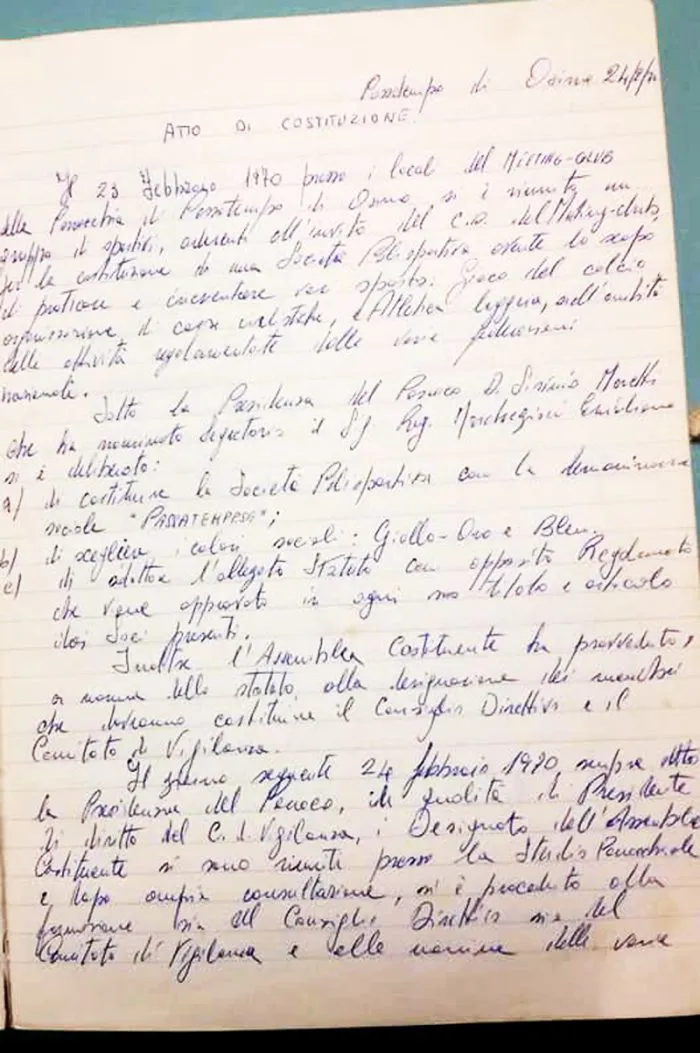 Passatempo di Osimo 24/2/70
ATTO DI COSTITUZIONE
Il 23 Febbraio 1970 presso i locali del MEETING-CLUB
della Parrocchia di Passatempo di Osimo, si è riunito un
gruppo di sportivi, aderenti all'invito del C.D. del Meeting-club,
per la costituzione di una Società Polisportiva avente lo scopo
di praticare e incentivare vari sports: Gioco del calcio
organizzazione di corse ciclistiche, e Atletica leggera, nell'ambito
delle attività regolamentate dalle varie federazioni
nazionali.
Sotto la Presidenza del Parroco D. Moretti
che ha nominato segretario il Sig. Rag. Emiliano
si è deliberato:
a) di costituire la Società Polisportiva con la denominazione
sociale "PASSATEMPESE";
b) di scegliere i colori sociali: Giallo-Oro e Bleu.
c) di adottare l'allegato Statuto con apposito Regolamento
che viene approvato in ogni suo titolo e articolo
dai Soci presenti.
Inoltre l'Assemblea Costituente ha provveduto,
a norma dello statuto, alla designazione dei membri
che dovranno costituire il Consiglio Direttivo e il
Comitato di Vigilanza.
Il giorno seguente 24 febbraio 1970, sempre sotto
la Presidenza del Parroco, in qualità di Presidente
di diritto del C. di Vigilanza, i Designati dell'Assemblea
Costituente si sono riuniti presso lo Studio Parrocchiale
e dopo ampia consultazione, si è proceduto alla
formazione sia del Consiglio Direttivo sia del
Comitato di Vigilanza e alle nomine delle varie